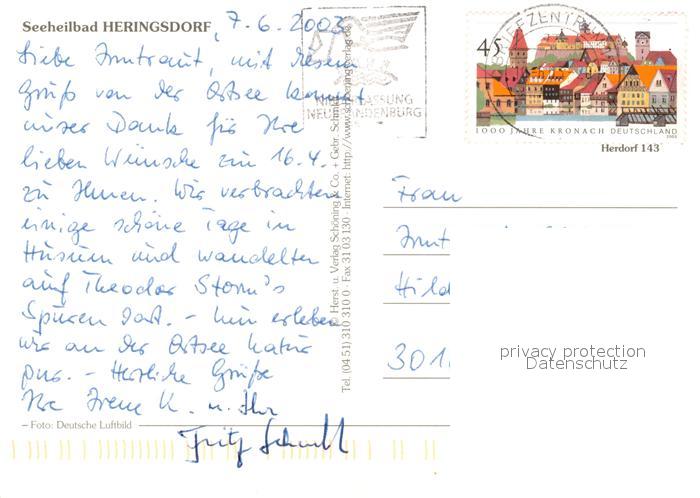 Seeheilbad HERINGSDORF, 7.6.2003
Liebe Irmtraut, mit diesem
Gruß von der Ostsee kommt
unser Dank für Ihre
lieben Wünsche zum 16.4.
zu Ihnen. Wir verbrachten
einige schöne Tage in
Husum und wandelten
auf Theodor Storm's
Spuren dort. – Nun erleben
wir an der Ostsee Natur
pur. – Herzliche Grüße
Ihre Irene K. u. Ihr
Fritz
– Foto: Deutsche Luftbild
Herst. u. Verlag Schöning & Co. + Gebr. Schmidt
Tel. (04 51) 310 310 0 · Fax 31 03 130 · Internet: http://www.schoening-verlag.de
BRIEFZENTRUM
45
1000 JAHRE KRONACH DEUTSCHLAND
2003
Herdorf 143
Frau
Irmt
Hild
301
privacy protection
Datenschutz